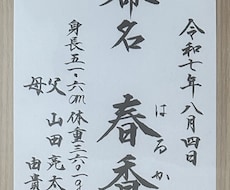 令和七年八月四日
命名 春香
はるか
身長五一・六cm体重
父 山田亮太
母 由貴